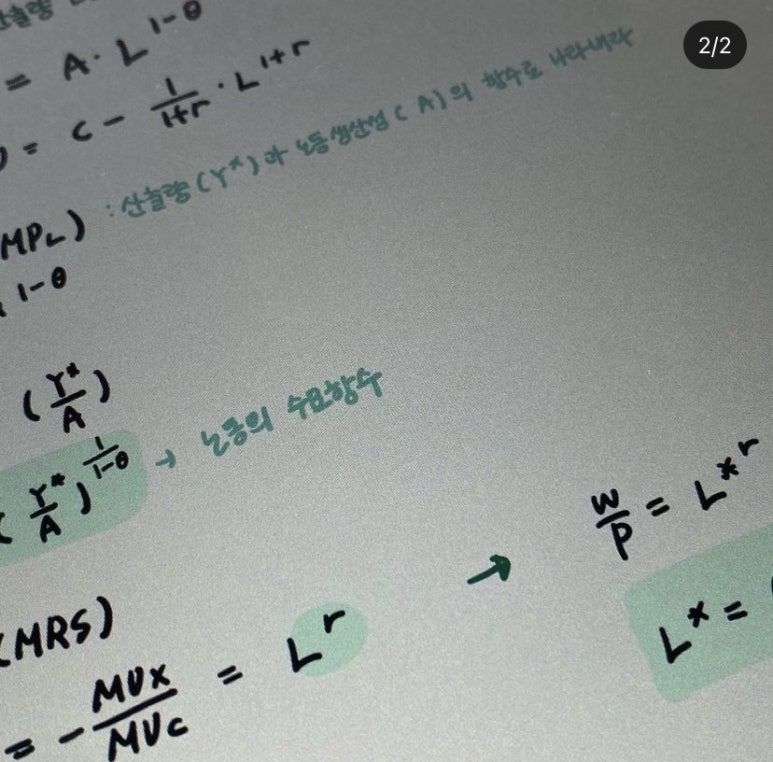 산출량
= A · L^1-θ
U = C - 1/1+r · L^1+r
MPL) : 산출량(Y*)과 노동생산성(A)의 함수로 나타내라
1-θ
(Y*/A)
(Y*/A)^1/1-θ → 노동의 수요함수
W/P = L*^r
→
L* =
(MRS)
= - MUx/MUc = L^r
2/2